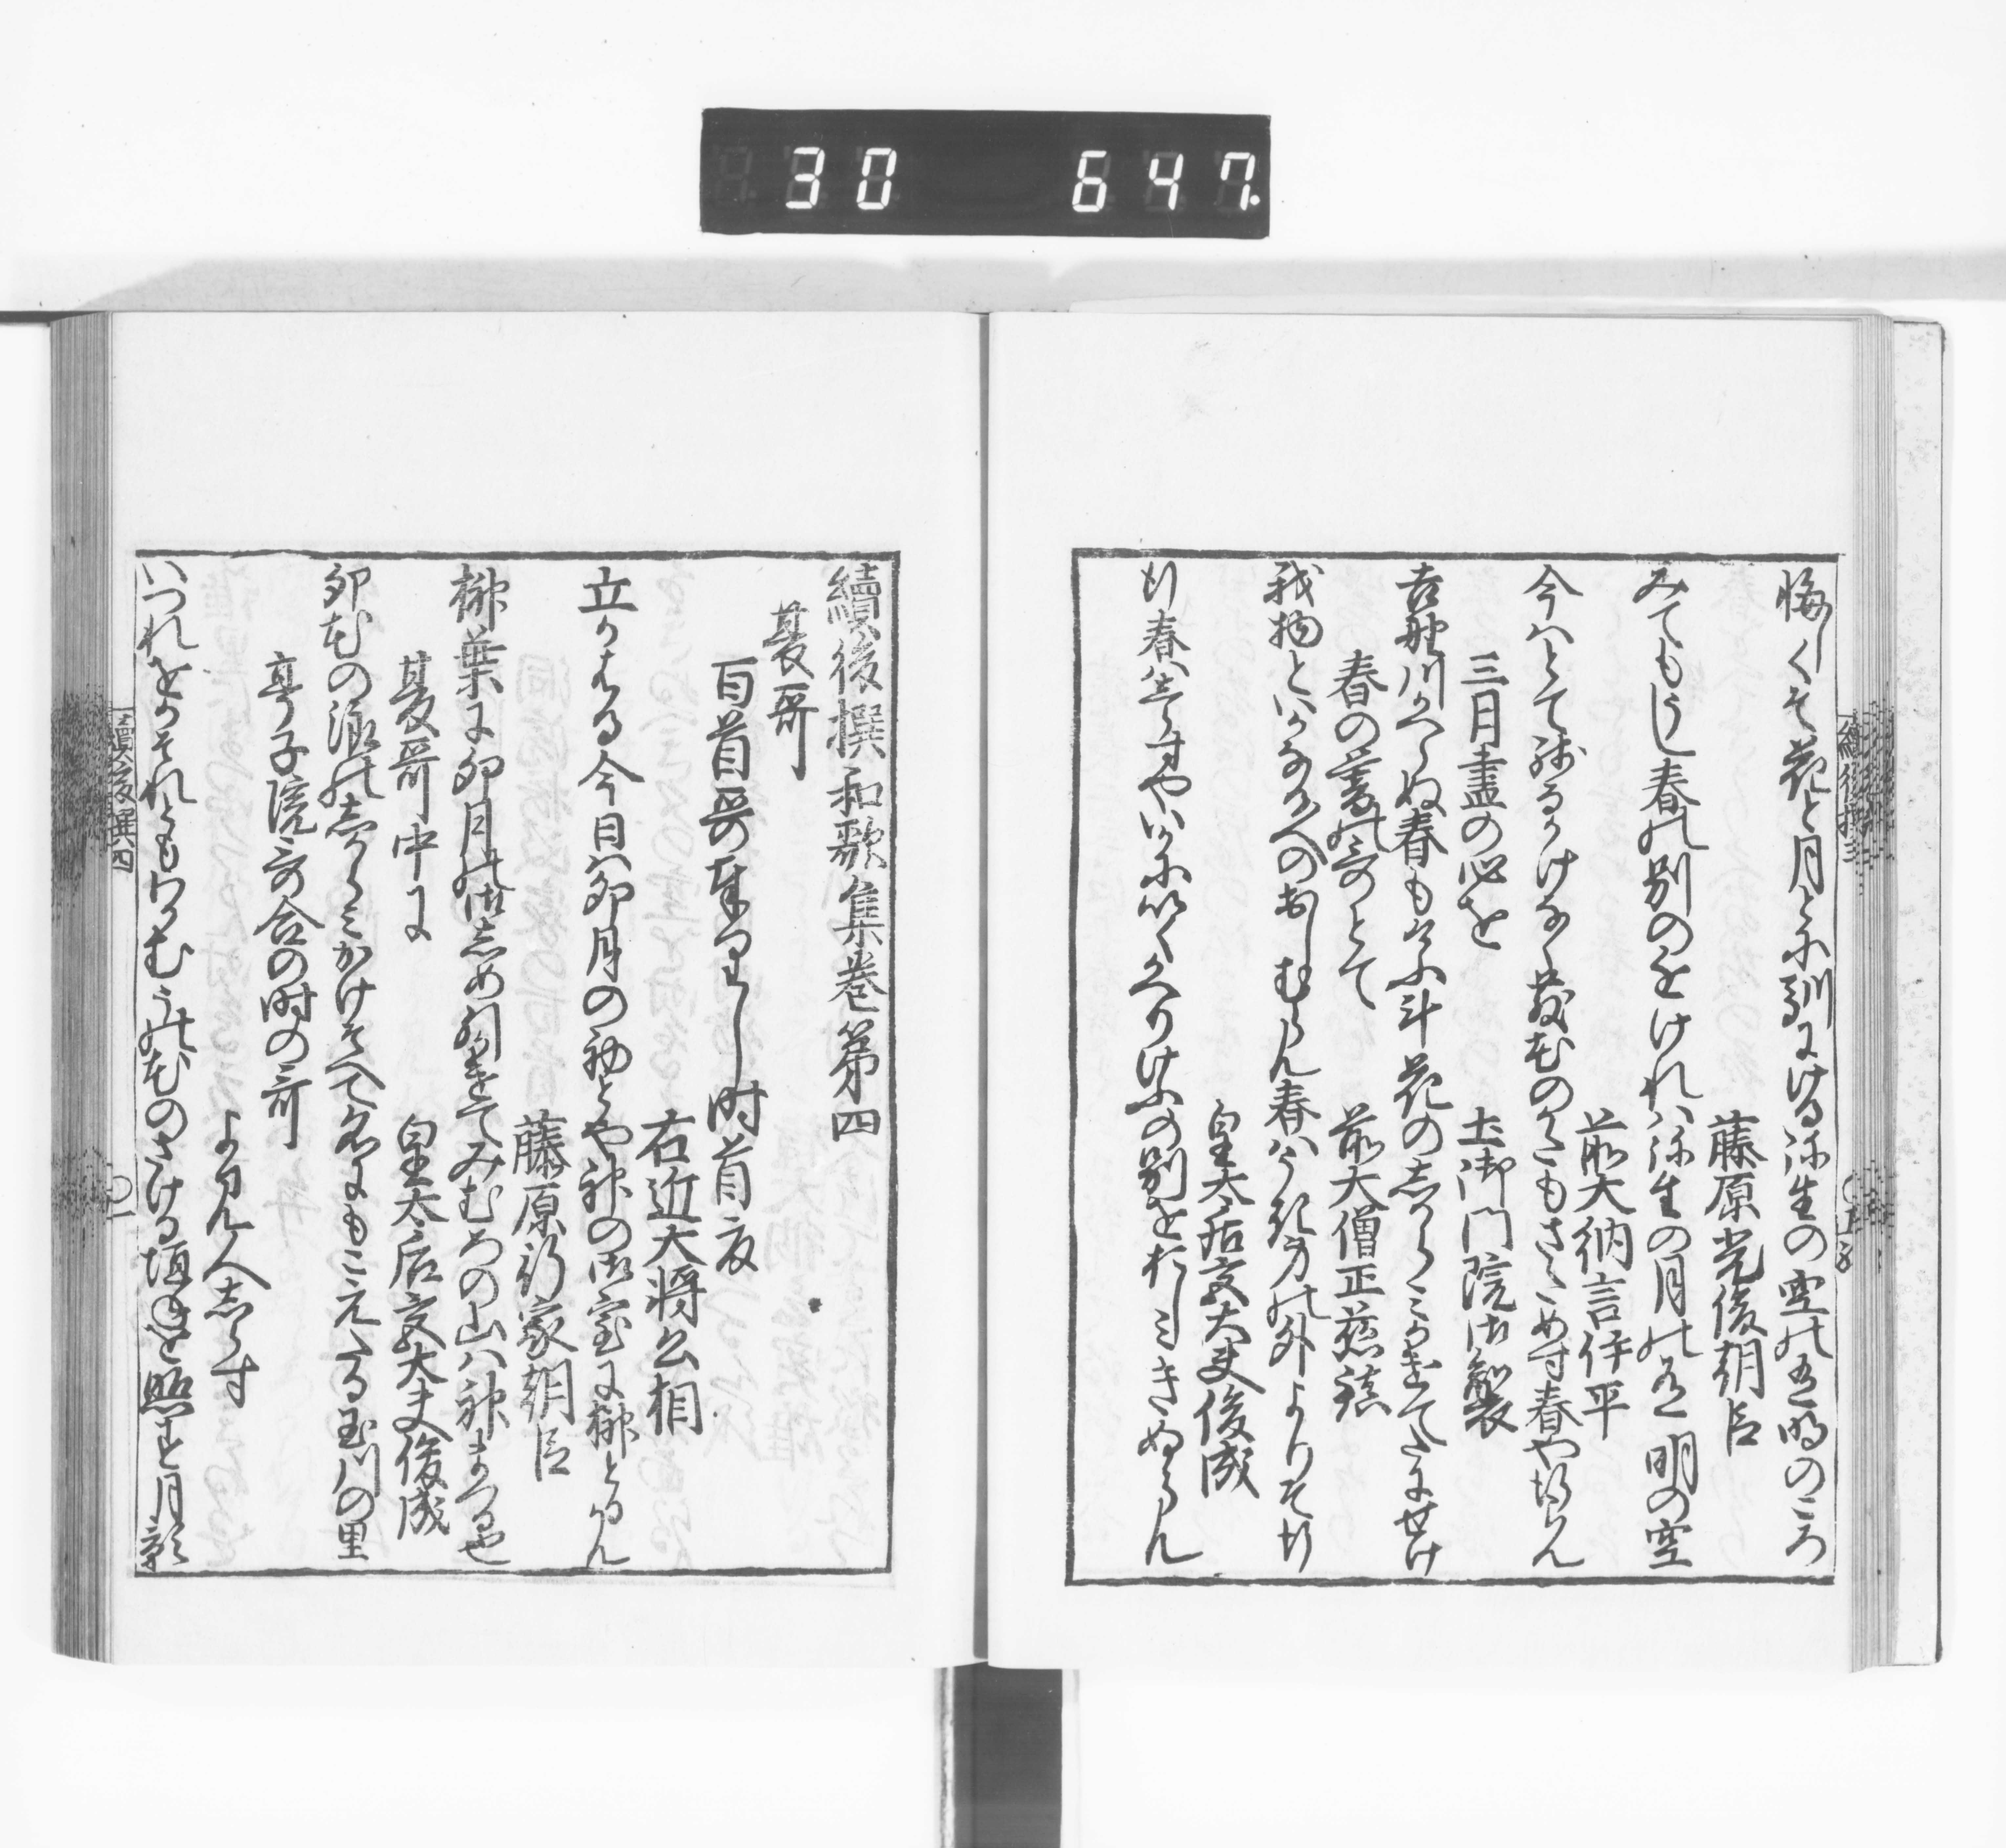 30 647
悔しくそ花と月とに馴にける弥生の空の在明のころ
藤原光俊朝臣
みてもうし春の別のをけれハ弥生の月の在明の空
前大納言伊平
今ハとて残るかけなく藤花のくるもさためす春や行らん
三月盡の心を
土御門院御製
吉野川かへらぬ春もけふ斗花のしからみかけてたにせけ
春の暮の哥とて
前大僧正慈鎮
我物といかなる人のおしむらん春ハうき身の外よりそ行
皇太后宮大夫俊成
行春ハしらすやいかに幾かへりけふの別をおしみきぬらん
續後撰和歌集巻第四
夏哥
百首哥奉りし時首夏
右近大将公相
立かはる今日ハ卯月の初とや神の御室に榊とるらん
藤原行家朝臣
榊葉に卯月の御しめ引かけてみむろの山ハ神まつる也
夏哥中に
皇太后宮大夫俊成
卯花の浪のしからみかけそへて名にもこえたる玉川の里
亭子院哥合の時の哥
よみ人しらす
いつれをかそれともわかむうの花のさける垣ねを照す月影
續後撰三
續後撰四
〇一